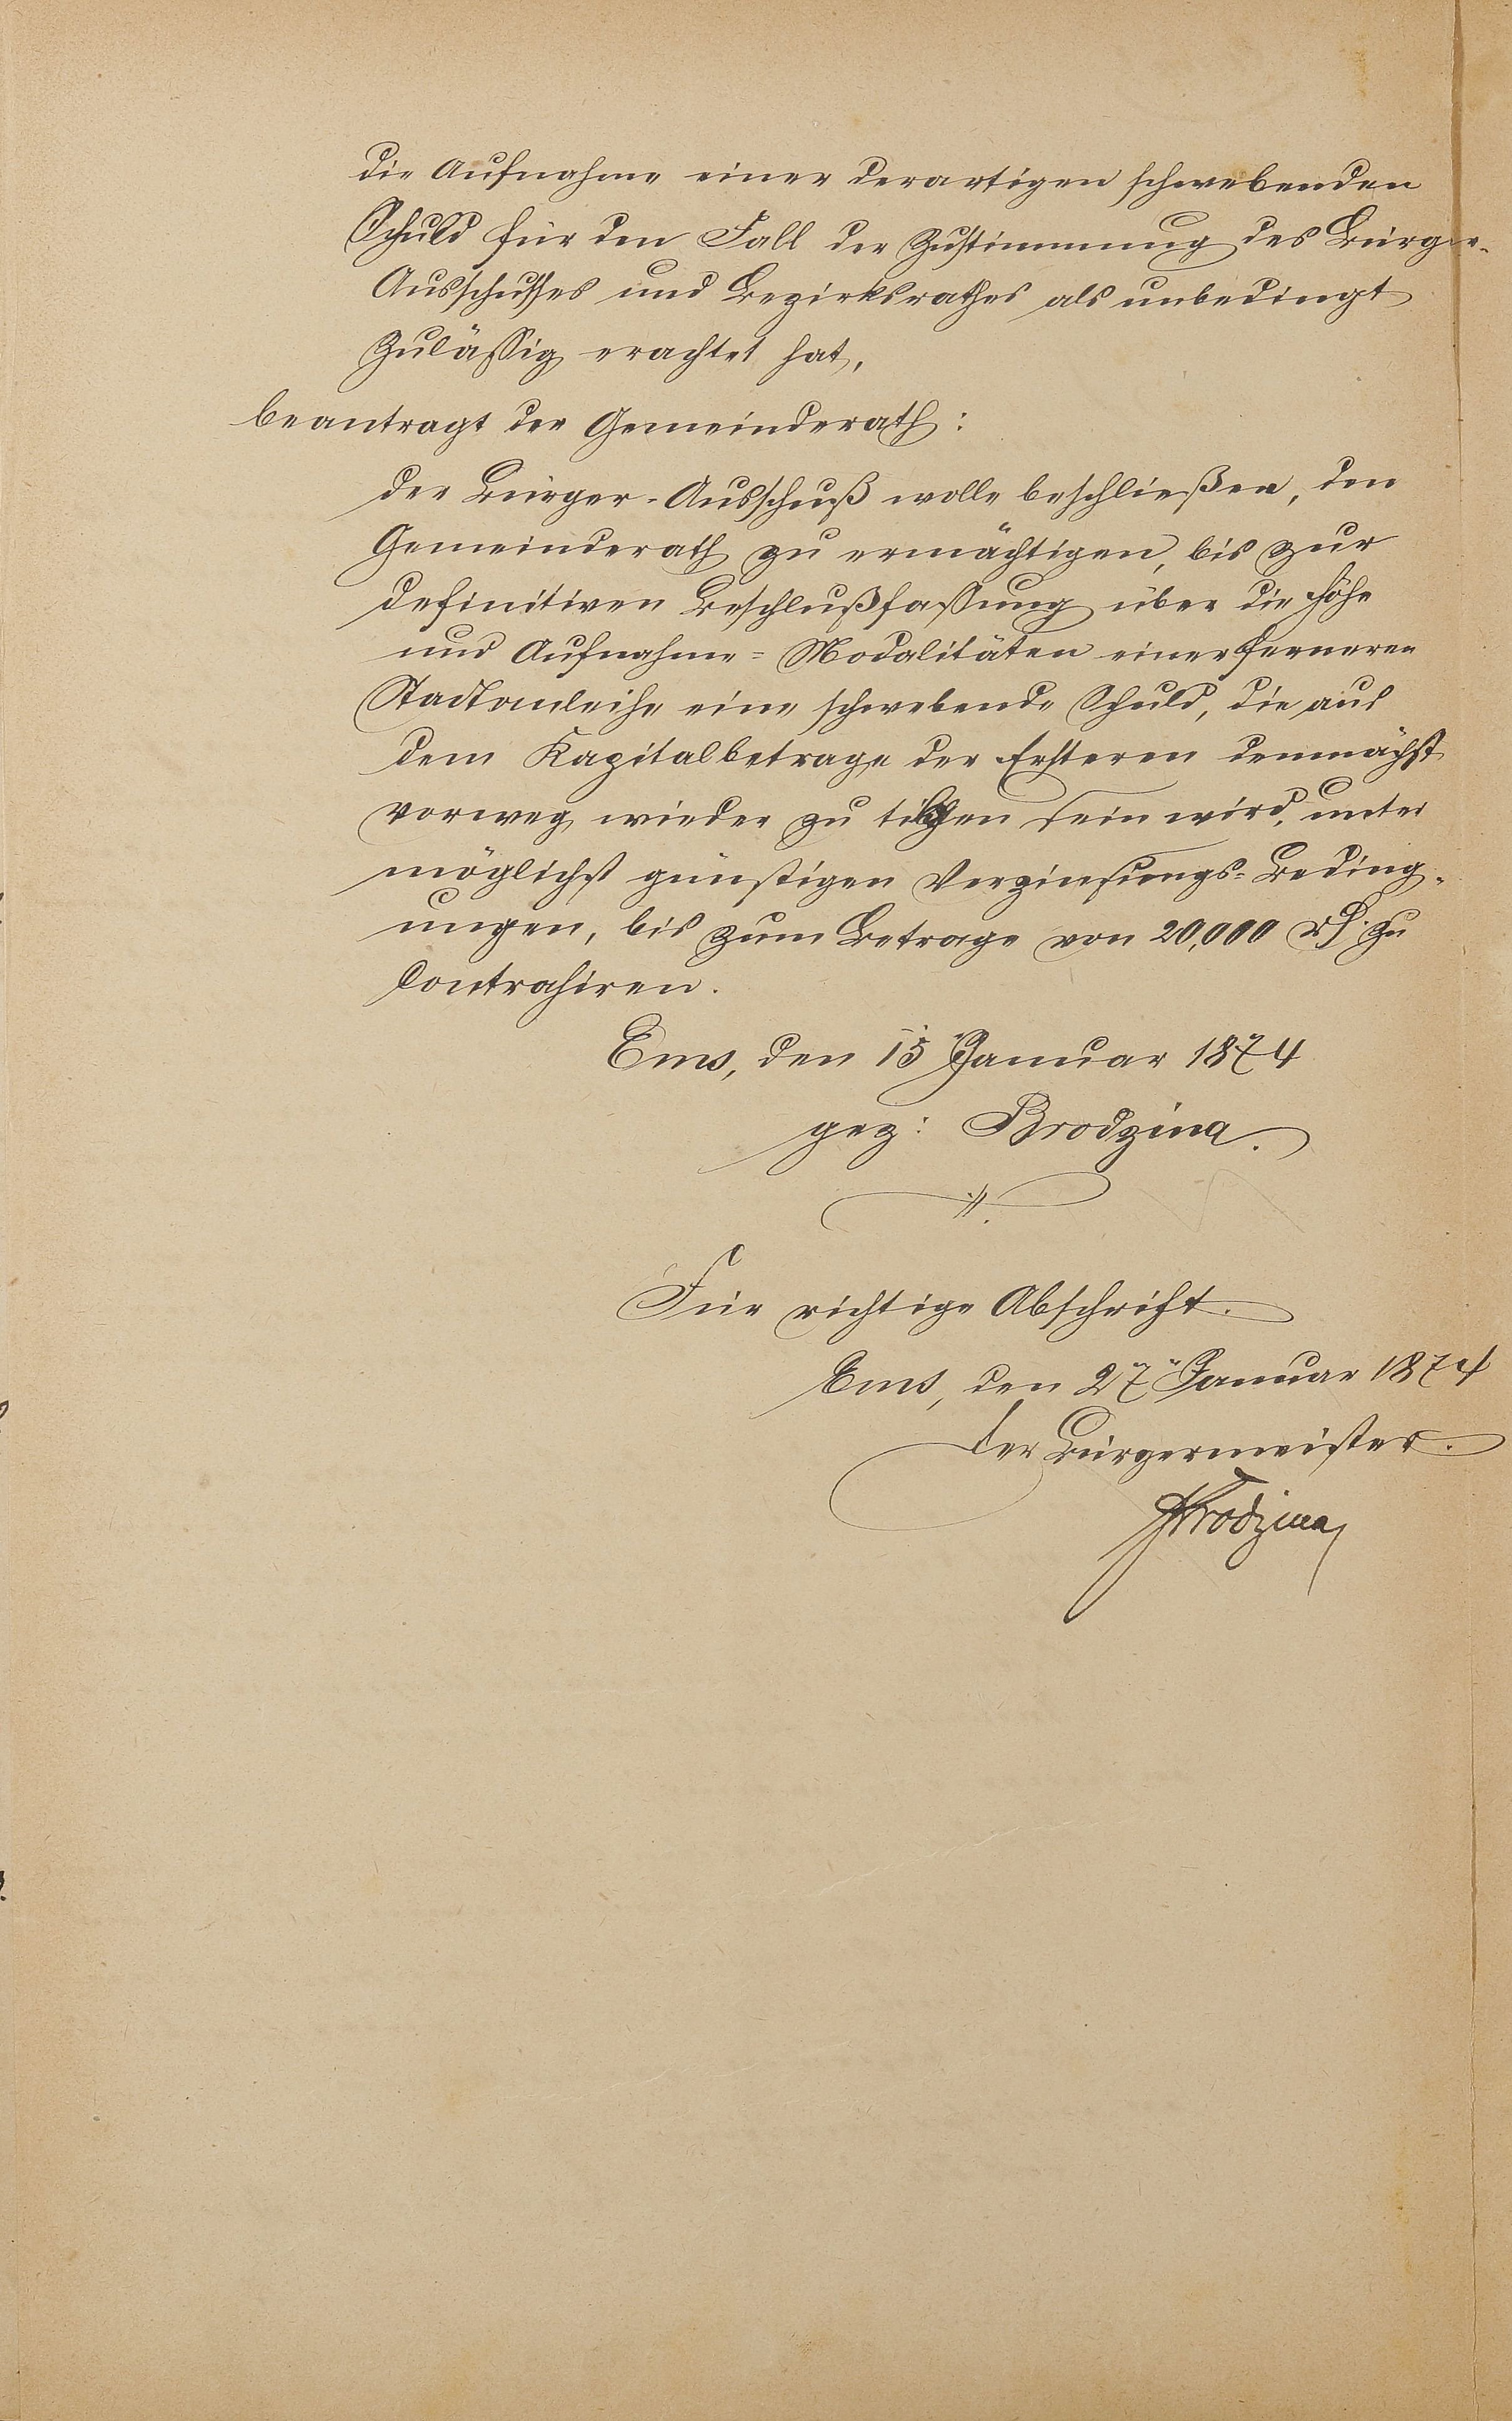 die Aufnahme einer derartigen schwebenden
Schuld für den Fall der Zustimmung des Bürger-
Ausschusses und Bezirksrathes als unbedingt
zuläßig erachtet hat,
beantragt der Gemeinderath:
der Bürger-Ausschuß wolle beschließen, den
Gemeinderath zu ermächtigen, bis zur
definitiven Beschlußfaßung über die Höhe
und Aufnahme-Modalitäten einer ferneren
Stadtanleihe eine schwebende Schuld, die aus
dem Kapitalbetrage der Ersteren demnächst
vorweg wieder zu tilgen sein wird, unter
möglichst günstigen Verzinsungs-Beding-
ungen, bis zum Betrage von 20,000 rℓ. zu
contrahiren.
Ems, den 15 Januar 1874
gez: Brodzina.
Für richtige Abschrift.
Ems, den 27 Januar 1874
Der Bürgermeister.
Brodzina